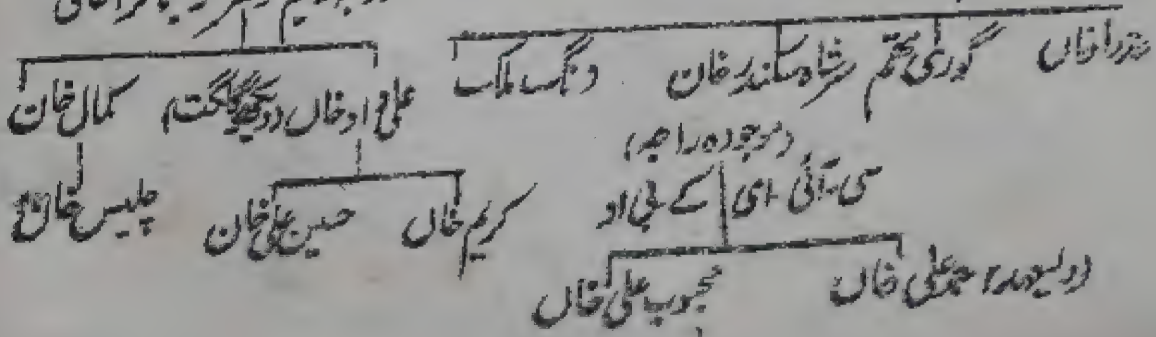 خان گوری تھم شاہ سکندر خان دنگ ملک
علی داد خاں (دیکھو گلگت) کمال خان
(موجودہ راجہ)
سی۔ آئی۔ ای کے بی او
کریم خاں حسین علی خان چلیس خان
(ولیعہد) محمد علی خاں محبوب علی خاں